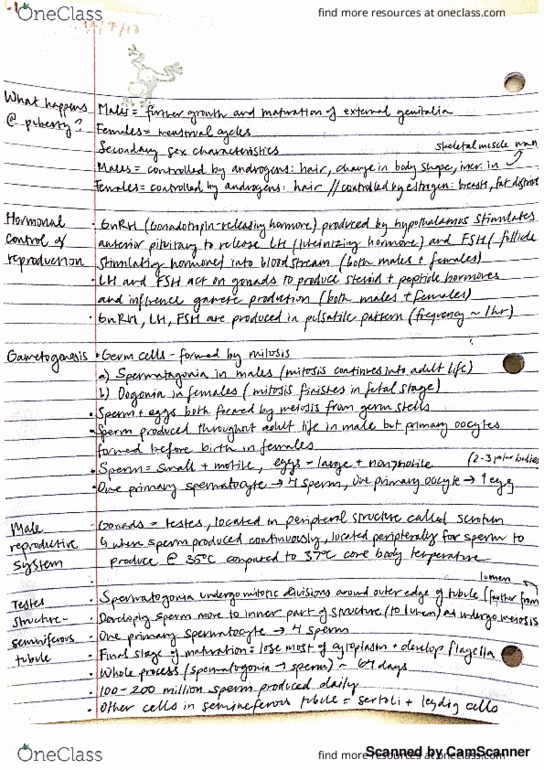 OneClass
find more resources at oneclass.com
11/7/17
What happens @ puberty?
Males = further growth and maturation of external genitalia
Females = menstrual cycles
Secondary sex characteristics
skeletal muscle mass
Males = controlled by androgens: hair, change in body shape, incr. in
Females = controlled by androgens: hair // controlled by estrogen: breasts, fat distrib
Hormonal control of reproduction
· GnRH (Gonadotropin-releasing hormone) produced by hypothalamus stimulates
anterior pituitary to release LH (luteinizing hormone) and FSH (follicle
stimulating hormone) into bloodstream (both males + females)
· LH and FSH act on gonads to produce steroid + peptide hormones
and influence gamete production (both males + females)
· GnRH, LH, FSH are produced in pulsatile pattern (frequency ~ 1hr)
Gametogenesis
· Germ cells - formed by mitosis
a) Spermatogonia in males (mitosis continues into adult life)
b) Oogonia in females (mitosis finishes in fetal stage)
· Sperm + eggs both formed by meiosis from germ stells
· Sperm produced throughout adult life in male but primary oocytes
formed before birth in females
· Sperm = small + motile, eggs = large + nonmotile
(2-3 polar bodies)
· One primary spermatocyte → 4 sperm, one primary oocyte → 1 egg
Male reproductive system
· Gonads = testes, located in peripheral structure called scrotum
↳ when sperm produced continuously, located peripherally for sperm to
produce @ 35°C compared to 37°C core body temperature
Testes structure - seminiferous tubule
lumen
· Spermatogonia undergo mitotic divisions around outer edge of tubule (further from
· Developing sperm move to inner part of structure (to lumen) as undergo meiosis
· One primary spermatocyte → 4 sperm
· Final stage of maturation = lose most of cytoplasm + develop flagella
· Whole process (spermatogonia → sperm) ~ 64 days
· 100-200 million sperm produced daily
· Other cells in seminiferous tubule = sertoli + leydig cells
OneClass
find more resources at oneclass.com
Scanned by CamScanner